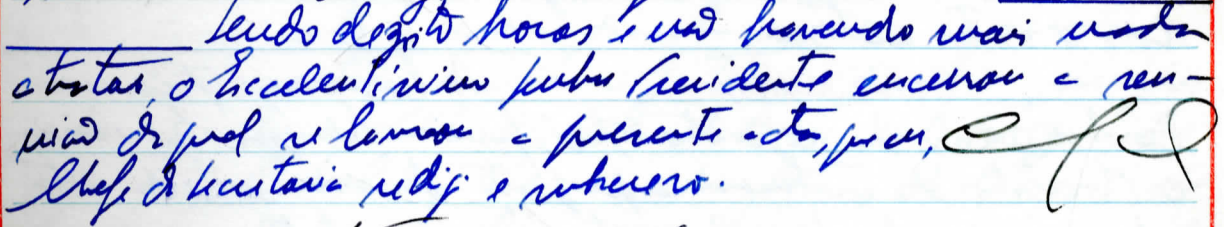 Sendo dezoito horas e não havendo mais nada
a tratar, o Excelentíssimo Senhor Presidente encerrou a reu-
nião da qual se lavrou a presente acta, que eu,
Chefe da Secretaria redigi e subscrevo.